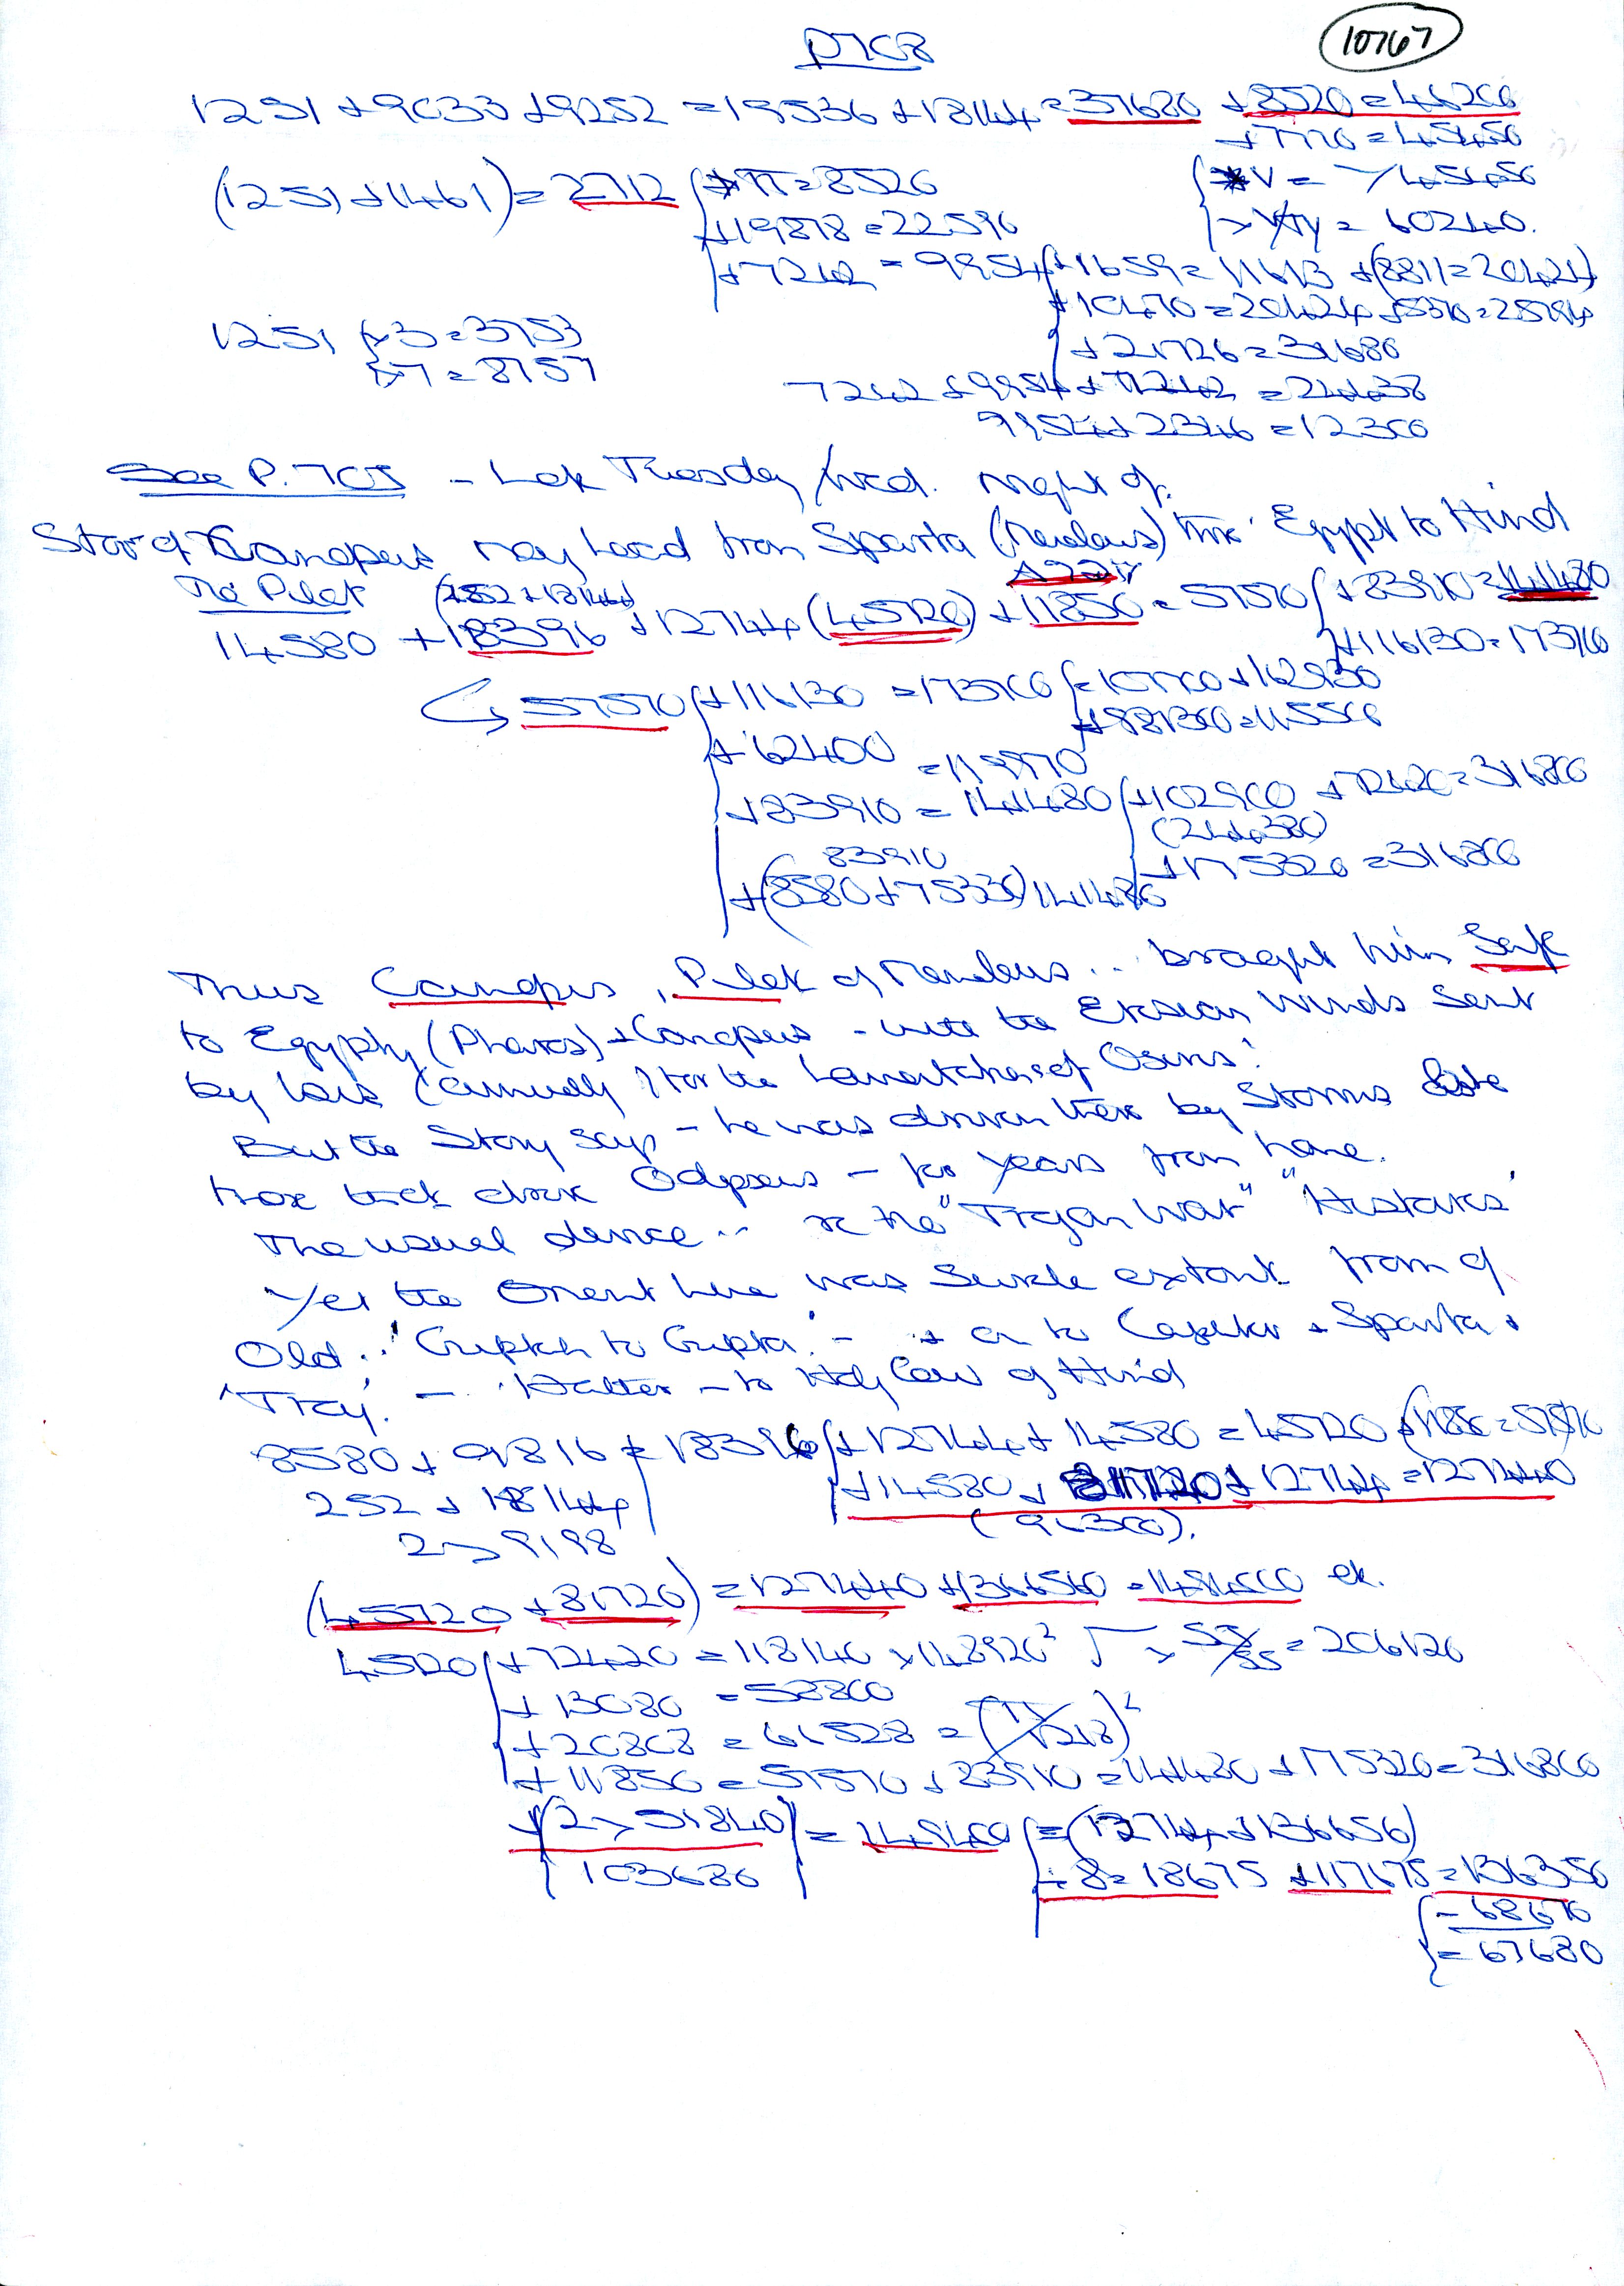 P708
10767
1251 + 9033 + 9252 = 19536 + 18144 = 37680 + 8520 = 46200
+ 7770 = 45450
(1251 + 1461) = 2712 × π = 8520
+ 19878 = 22590
+ 7242 = 9954 + 1659 = 11613 + (8811 = 20424)
+ 10470 = 20424 + 5370 = 25794
+ 21726 = 31680
1251 × 3 = 3753
× 7 = 8757
7242 + 9954 + 7242 = 24438
9954 + 2346 = 12300
See P. 705 - Late Tuesday / Wed. night of.
Star of Canopus may lead from Sparta (Menelaus) thro' Egypt to Hind
The Pilot (252 + 18144)
14580 + 18396 + 12744 (45720) + 11850 = 57570 + 83910 = 141480
+ 116130 = 173700
57570 + 116130 = 173700
+ 62400 = 119970
+ 83910 = 141480 + 102900 + 72420 = 316800
(244380)
+ 175320 = 316800
83910
+ (8580 + 75330) 141480
Thus Canopus, Pilot of Menelaus .. brought him Safe
to Egypt, (Pharos) + Canopus - with the Etesian Winds Sent
by Isis (annually) for the Lamentations of Osiris!
But the Story says - he was driven there by Storms
Odysseus - for years from home.
The usual dance .. re the "Trojan War" "Historians'
Yet the Orient line was Surely extant from of
Old .. 'Guptah to Gupta' - + on to + Sparta +
'Troy'. - Hator - to Holy Cow of Hind
8580 + 9816 = 18396 + 12744 + 14580 = 45720 + (11850 = 57570
252 + 18144 + 14580 + 81720 + 12744 = 127440
2 > 9198 (96300).
(45720 + 81720) = 127440 + 1366560 = 1494000 etc.
45720 + 72420 = 118140
+ 13080 = 58800
+ 20808 = 66528
+ 11850 = 57570 + 83910 = 141480 + 175320 = 316800
+ (2 > 51840) = 149400 = (12744 + 136656)
103680 ÷ 8 = 18675 + 117675 = 136350
- 68670
= 67680